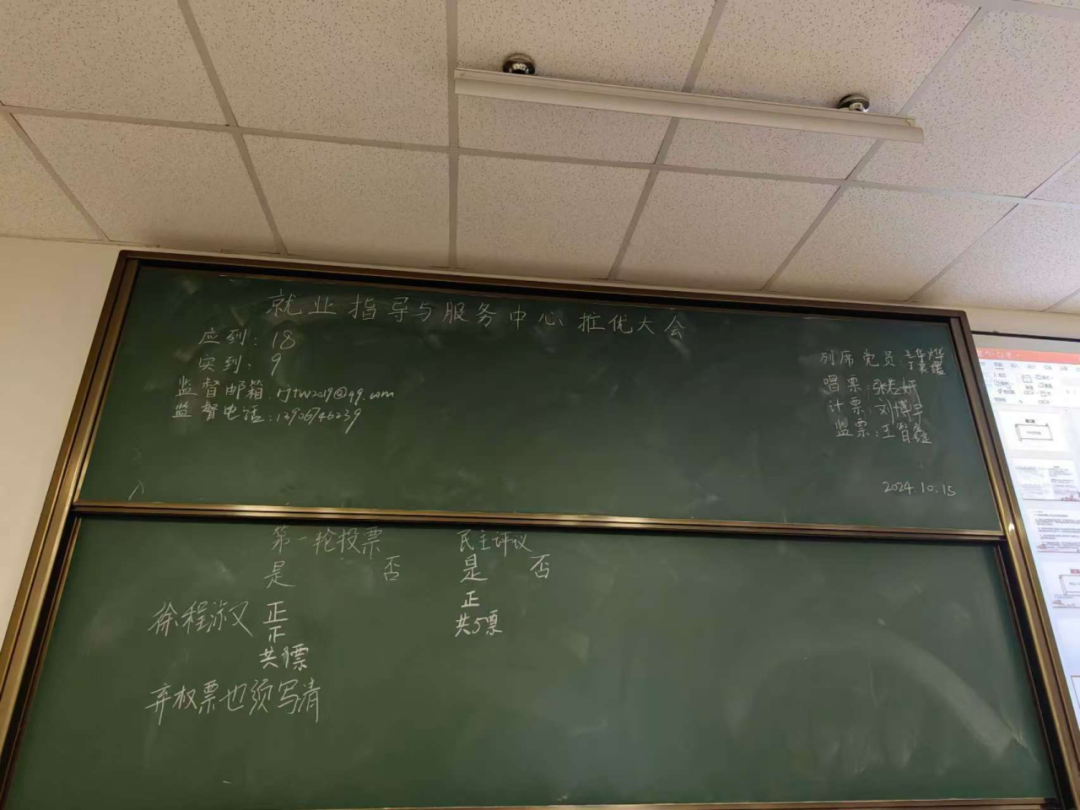 就业指导与服务中心推优大会
应到：18
实到：9
监督邮箱：rjtw2019@qq.com
监督电话：
列席党员
唱票：张志妍
计票：刘博
监票：王智鑫
2024.10.15
第一轮投票 民主评议
是 否 是 否
徐程淑 正 正
正 共5票
共9票
弃权票也须写清